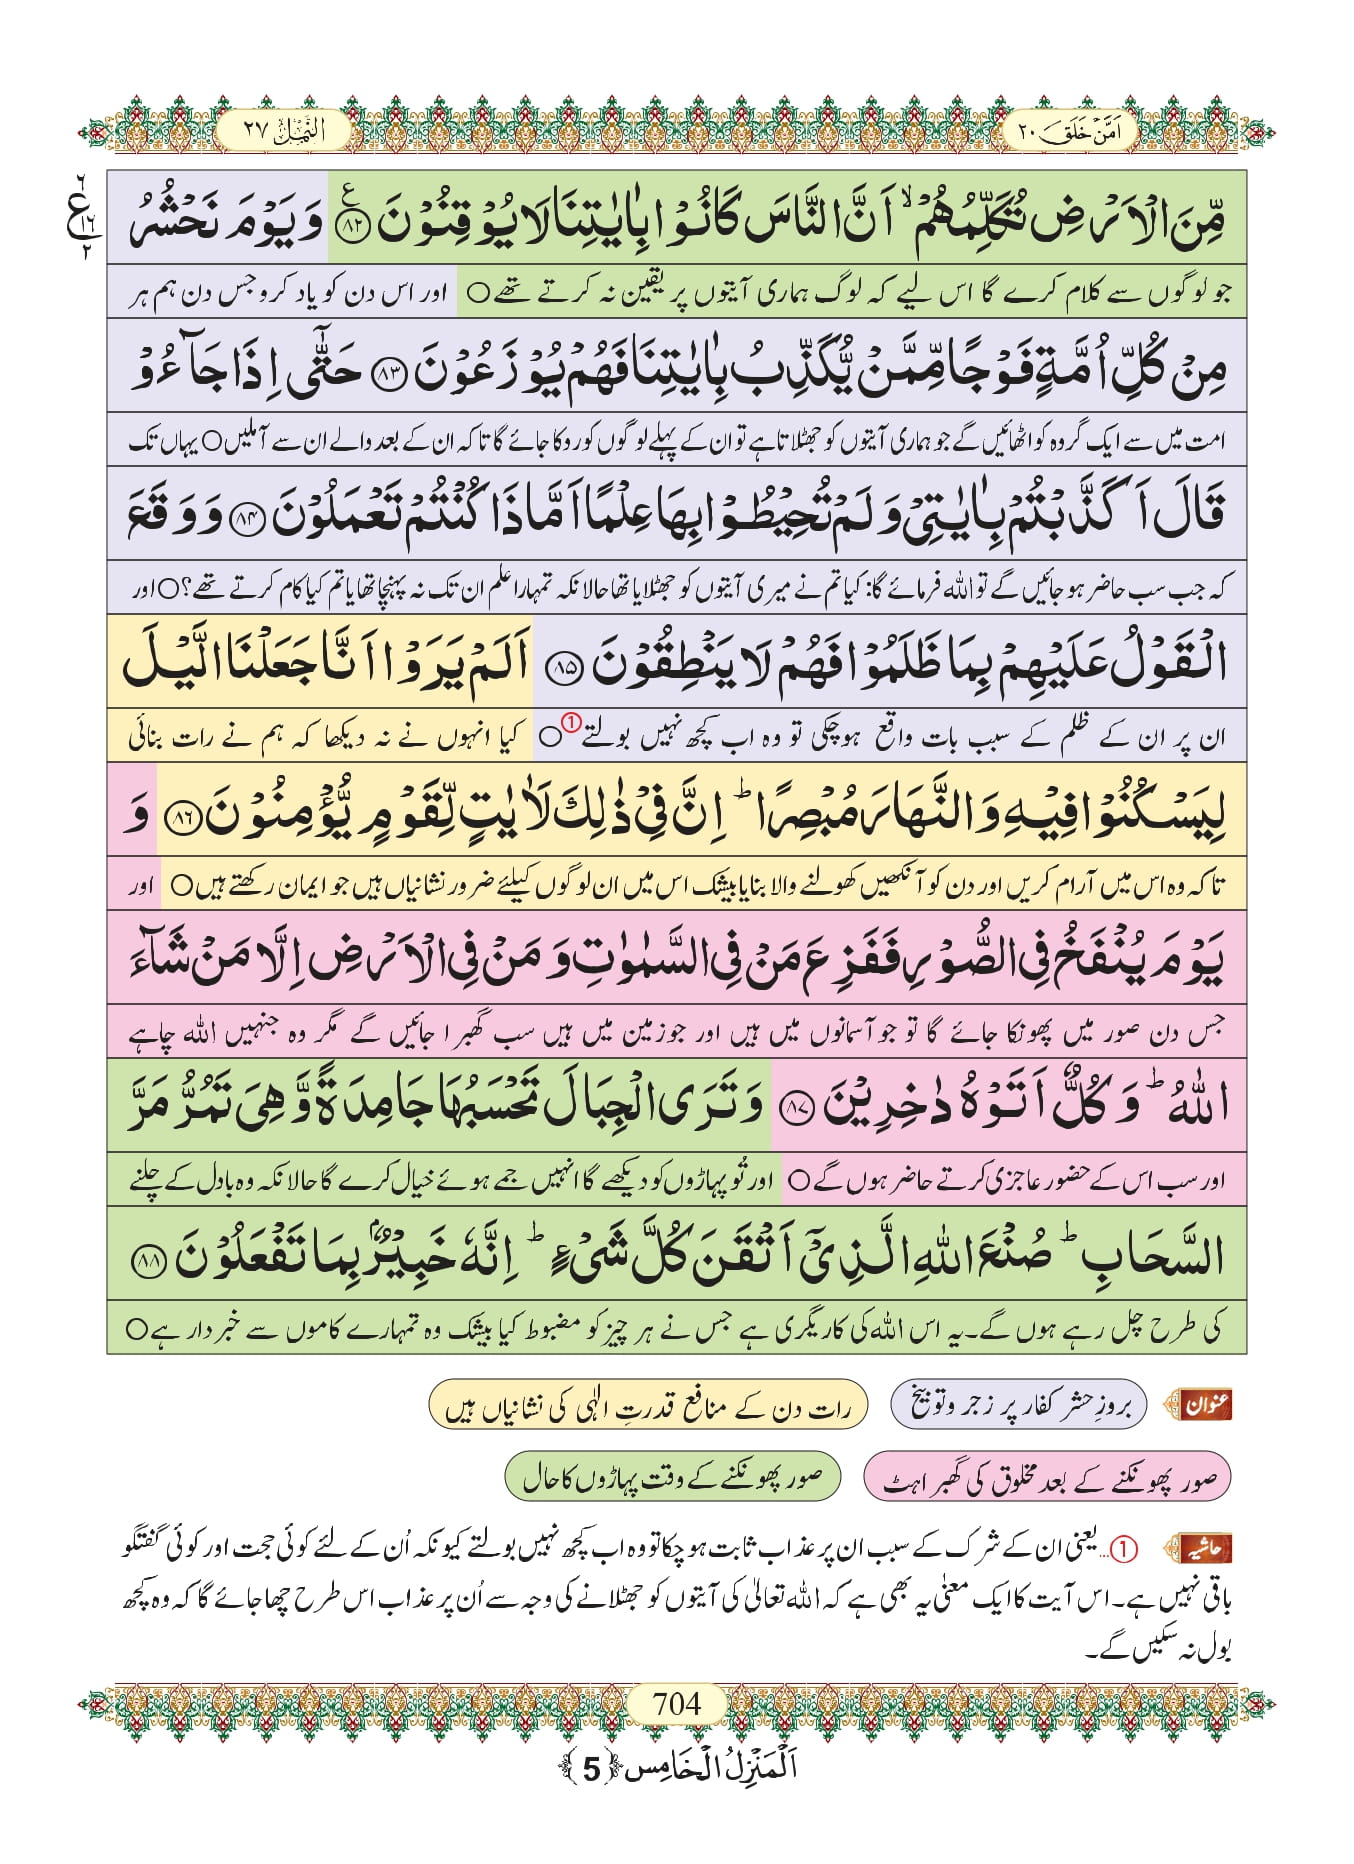 اَمَّنۡ خَلَقَ ۲۰
النَّمۡل ۲۷
مِّنَ الۡاَرۡضِ تُكَلِّمُهُمۡ ۙ اَنَّ النَّاسَ كَانُوۡا بِاٰيٰتِنَا لَا يُوۡقِنُوۡنَ ﴿۸۲﴾ وَيَوۡمَ نَحۡشُرُ
ع ۶ ۱۶ ۲
جو لوگوں سے کلام کرے گا اس لیے کہ لوگ ہماری آیتوں پر یقین نہ کرتے تھے ○ اور اس دن کو یاد کرو جس دن ہم ہر
مِنۡ كُلِّ اُمَّةٍ فَوۡجًا مِّمَّنۡ يُّكَذِّبُ بِاٰيٰتِنَا فَهُمۡ يُوۡزَعُوۡنَ ﴿۸۳﴾ حَتّٰٓى اِذَا جَآءُوۡ
امت میں سے ایک گروہ کو اٹھائیں گے جو ہماری آیتوں کو جھٹلاتا ہے تو ان کے پہلے لوگوں کو روکا جائے گا تاکہ ان کے بعد والے ان سے آملیں ○ یہاں تک
قَالَ اَكَذَّبۡتُمۡ بِاٰيٰتِىۡ وَلَمۡ تُحِيۡطُوۡا بِهَا عِلۡمًا اَمَّاذَا كُنۡتُمۡ تَعۡمَلُوۡنَ ﴿۸۴﴾ وَوَقَعَ
کہ جب سب حاضر ہو جائیں گے تو اللہ فرمائے گا: کیا تم نے میری آیتوں کو جھٹلایا تھا حالانکہ تمہارا علم ان تک نہ پہنچا تھا یا تم کیا کام کرتے تھے؟ ○ اور
الۡقَوۡلُ عَلَيۡهِمۡ بِمَا ظَلَمُوۡا فَهُمۡ لَا يَنۡطِقُوۡنَ ﴿۸۵﴾ اَلَمۡ يَرَوۡا اَنَّا جَعَلۡنَا الَّيۡلَ
ان پر ان کے ظلم کے سبب بات واقع ہوچکی تو وہ اب کچھ نہیں بولتے ① ○ کیا انہوں نے نہ دیکھا کہ ہم نے رات بنائی
لِيَسۡكُنُوۡا فِيۡهِ وَالنَّهَارَ مُبۡصِرًا ؕ اِنَّ فِىۡ ذٰلِكَ لَاٰيٰتٍ لِّقَوۡمٍ يُّؤۡمِنُوۡنَ ﴿۸۶﴾ وَ
تاکہ وہ اس میں آرام کریں اور دن کو آنکھیں کھولنے والا بنایا بیشک اس میں ان لوگوں کیلئے ضرور نشانیاں ہیں جو ایمان رکھتے ہیں ○ اور
يَوۡمَ يُنۡفَخُ فِى الصُّوۡرِ فَفَزِعَ مَنۡ فِى السَّمٰوٰتِ وَمَنۡ فِى الۡاَرۡضِ اِلَّا مَنۡ شَآءَ
جس دن صور میں پھونکا جائے گا تو جو آسمانوں میں ہیں اور جو زمین میں ہیں سب گھبرا جائیں گے مگر وہ جنہیں اللہ چاہے
اللّٰهُ ؕ وَكُلٌّ اَتَوۡهُ دٰخِرِيۡنَ ﴿۸۷﴾ وَتَرَى الۡجِبَالَ تَحۡسَبُهَا جَامِدَةً وَّهِىَ تَمُرُّ مَرَّ
اور سب اس کے حضور عاجزی کرتے حاضر ہوں گے ○ اور تُو پہاڑوں کو دیکھے گا انہیں جمے ہوئے خیال کرے گا حالانکہ وہ بادل کے چلنے
السَّحَابِ ؕ صُنۡعَ اللّٰهِ الَّذِىۡۤ اَتۡقَنَ كُلَّ شَىۡءٍ ؕ اِنَّهٗ خَبِيۡرٌۢ بِمَا تَفۡعَلُوۡنَ ﴿۸۸﴾
کی طرح چل رہے ہوں گے۔ یہ اس اللہ کی کاریگری ہے جس نے ہر چیز کو مضبوط کیا بیشک وہ تمہارے کاموں سے خبردار ہے ○
عنوان بروزِ حشر کفار پر زجر و توبیخ رات دن کے منافع قدرتِ الٰہی کی نشانیاں ہیں
صور پھونکنے کے بعد مخلوق کی گھبراہٹ صور پھونکنے کے وقت پہاڑوں کا حال
حاشیہ ①...یعنی ان کے شرک کے سبب ان پر عذاب ثابت ہو چکا تو وہ اب کچھ نہیں بولتے کیونکہ اُن کے لئے کوئی حجت اور کوئی گفتگو
باقی نہیں ہے۔ اس آیت کا ایک معنٰی یہ بھی ہے کہ اللہ تعالیٰ کی آیتوں کو جھٹلانے کی وجہ سے اُن پر عذاب اس طرح چھا جائے گا کہ وہ کچھ
بول نہ سکیں گے۔
704
اَلۡمَنۡزِلُ الۡخَامِس ﴿5﴾